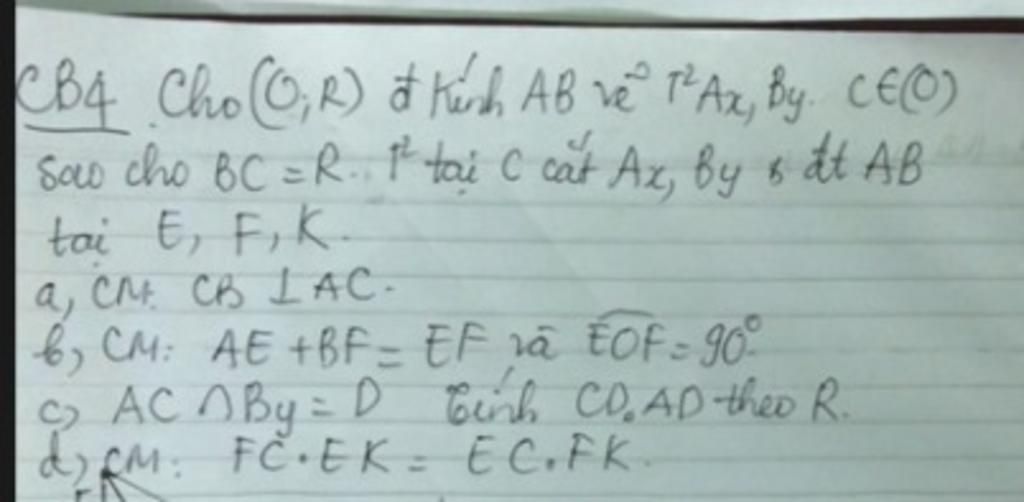 CB4 Cho (O;R) đ kính AB vẽ T² Ax, By. C∈(O)
sao cho BC = R. T² tại C cắt Ax, By & đt AB
tại E, F, K.
a, CM: CB ⊥ AC.
b, CM: AE + BF = EF và EOF = 90°
c, AC ∩ By = D tính CD.AD theo R.
d, CM: FC.EK = EC.FK.